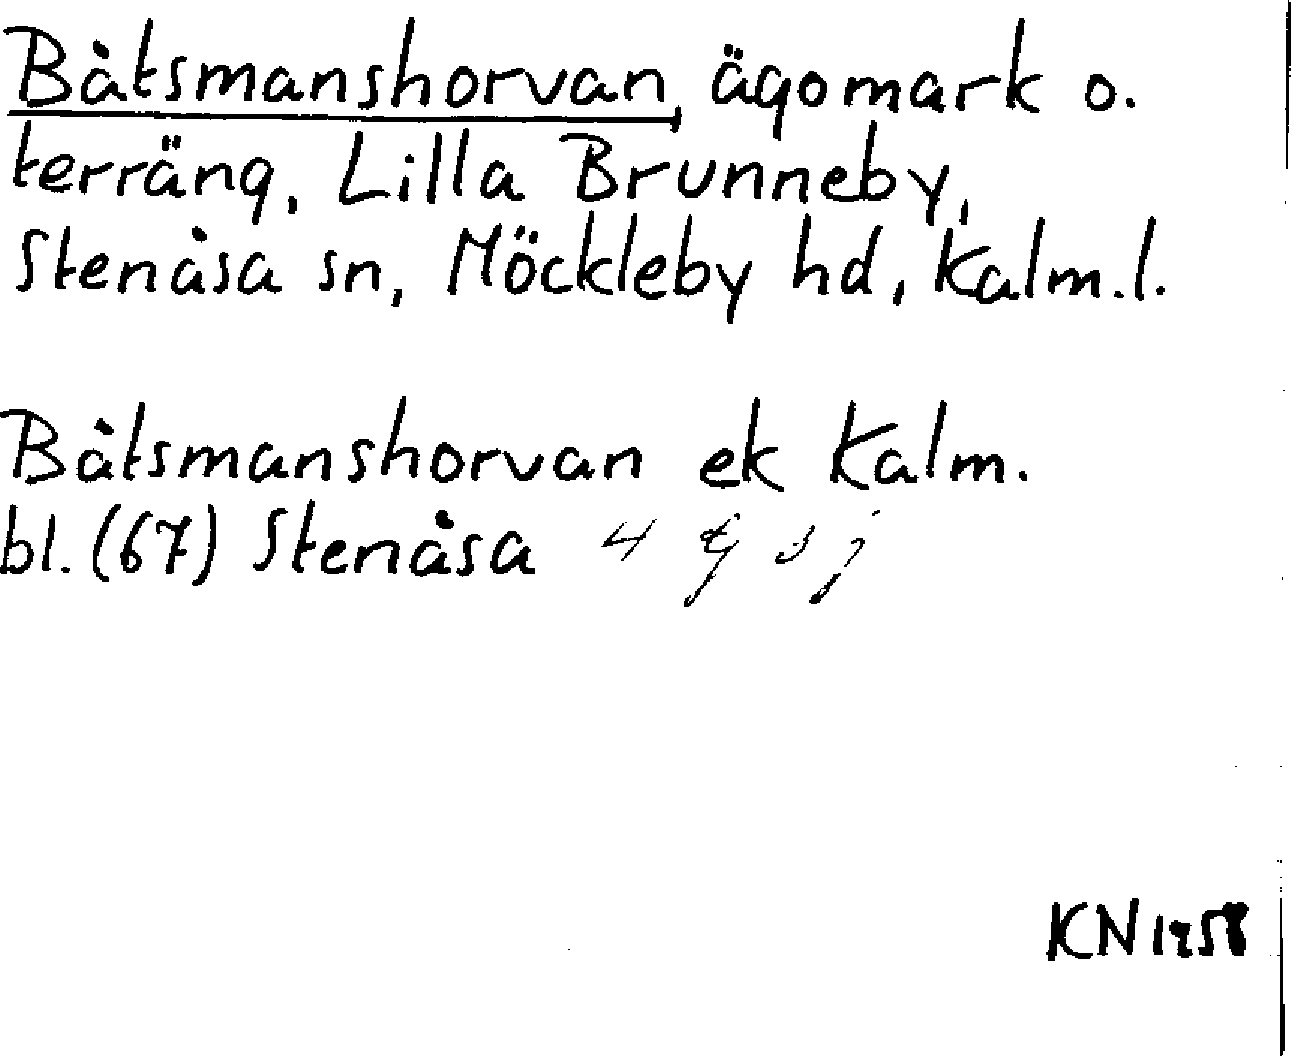 Båtsmanshorvan, ägomark o.
terräng, Lilla Brunneby,
Stenåsa sn, Möckleby hd, Kalm.l.
Båtsmanshorvan ek Kalm.
bl. (67) Stenåsa 4 g s j
KN 1958